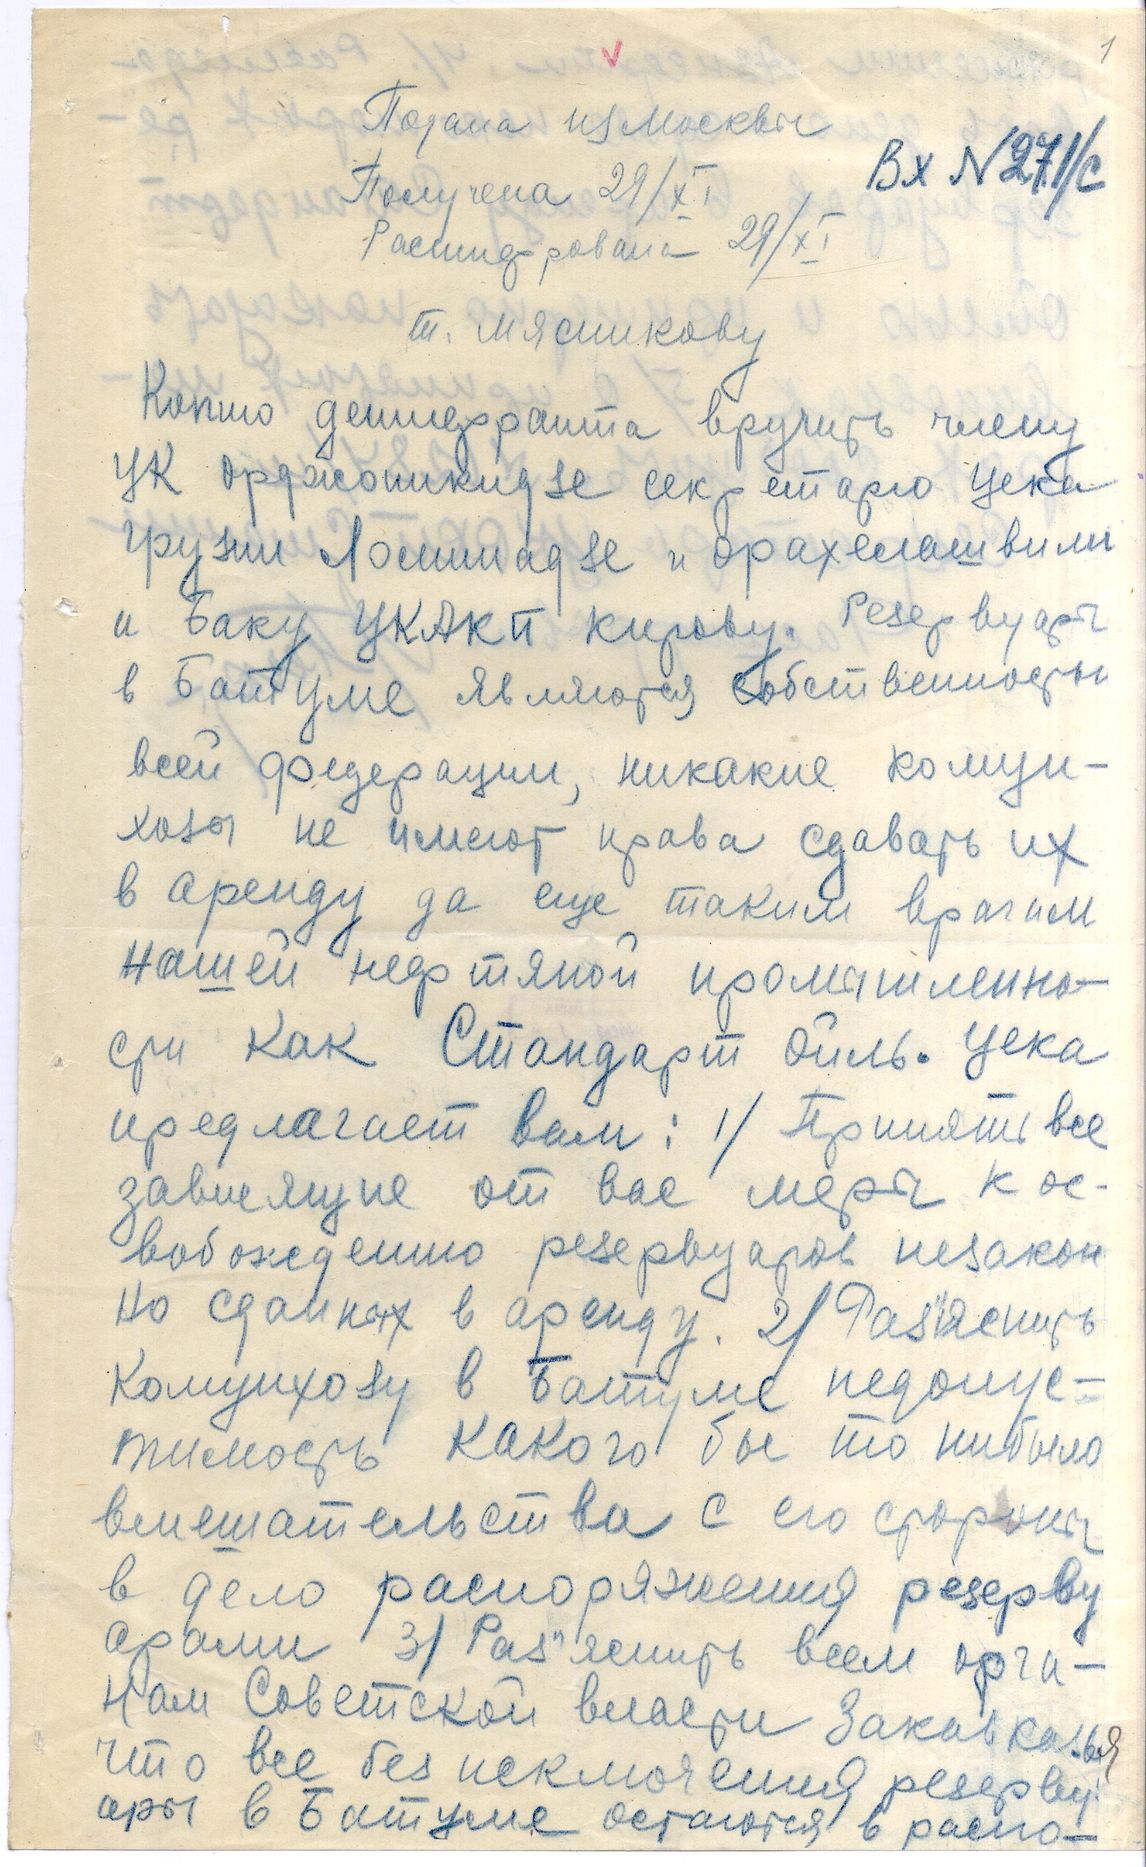 1
Подана из Москвы
Вх N 271/с
Получена 29/XI
Расшифрована 29/XI
т. Мясникову
Копию дешифранта вручить члену
ЦК Орджоникидзе секретарю Цека
Грузии Ломинадзе и Орахелашвили
и Баку ЦКАКП Кирову. Резервуары
в Батуме являются собственностью
всей федерации, никакие комун-
хозы не имеют права сдавать их
в аренду да еще таким врагам
нашей нефтяной промышленно-
сти как Стандарт Ойль. Цека
предлагает вам: 1/ Принять все
зависящие от вас меры к ос-
вобождению резервуаров незакон
но сданных в аренду. 2/ Раз"яснить
Комунхозу в Батуме недопус-
тимость какого бы то нибыло
вмешательства с его стороны
в дело распоряжения резерву
арами 3/ Раз"яснить всем орга-
нам Советской власти Закавказья
что все без исключения резерву
ары в Батуме остаются в распо-